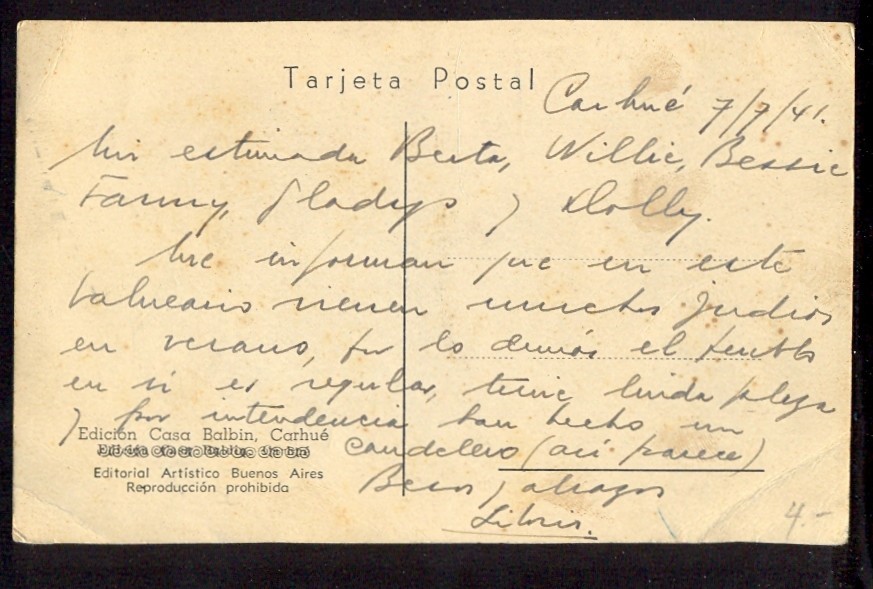 Tarjeta Postal
Carhué 7/7/41.
Mis estimada Berta, Willie, Bessie
Fanny, Gladys y Dolly.
Me informan que en este
balneario vienen muchos judios
en verano, por lo demás el pueblo
en si es regular, tiene linda playa
y por intendencia han hecho un
candelero (asi parece)
Besos y abrazos
Edición Casa Balbin, Carhué
Editorial Artístico Buenos Aires
Reproducción prohibida
4.-